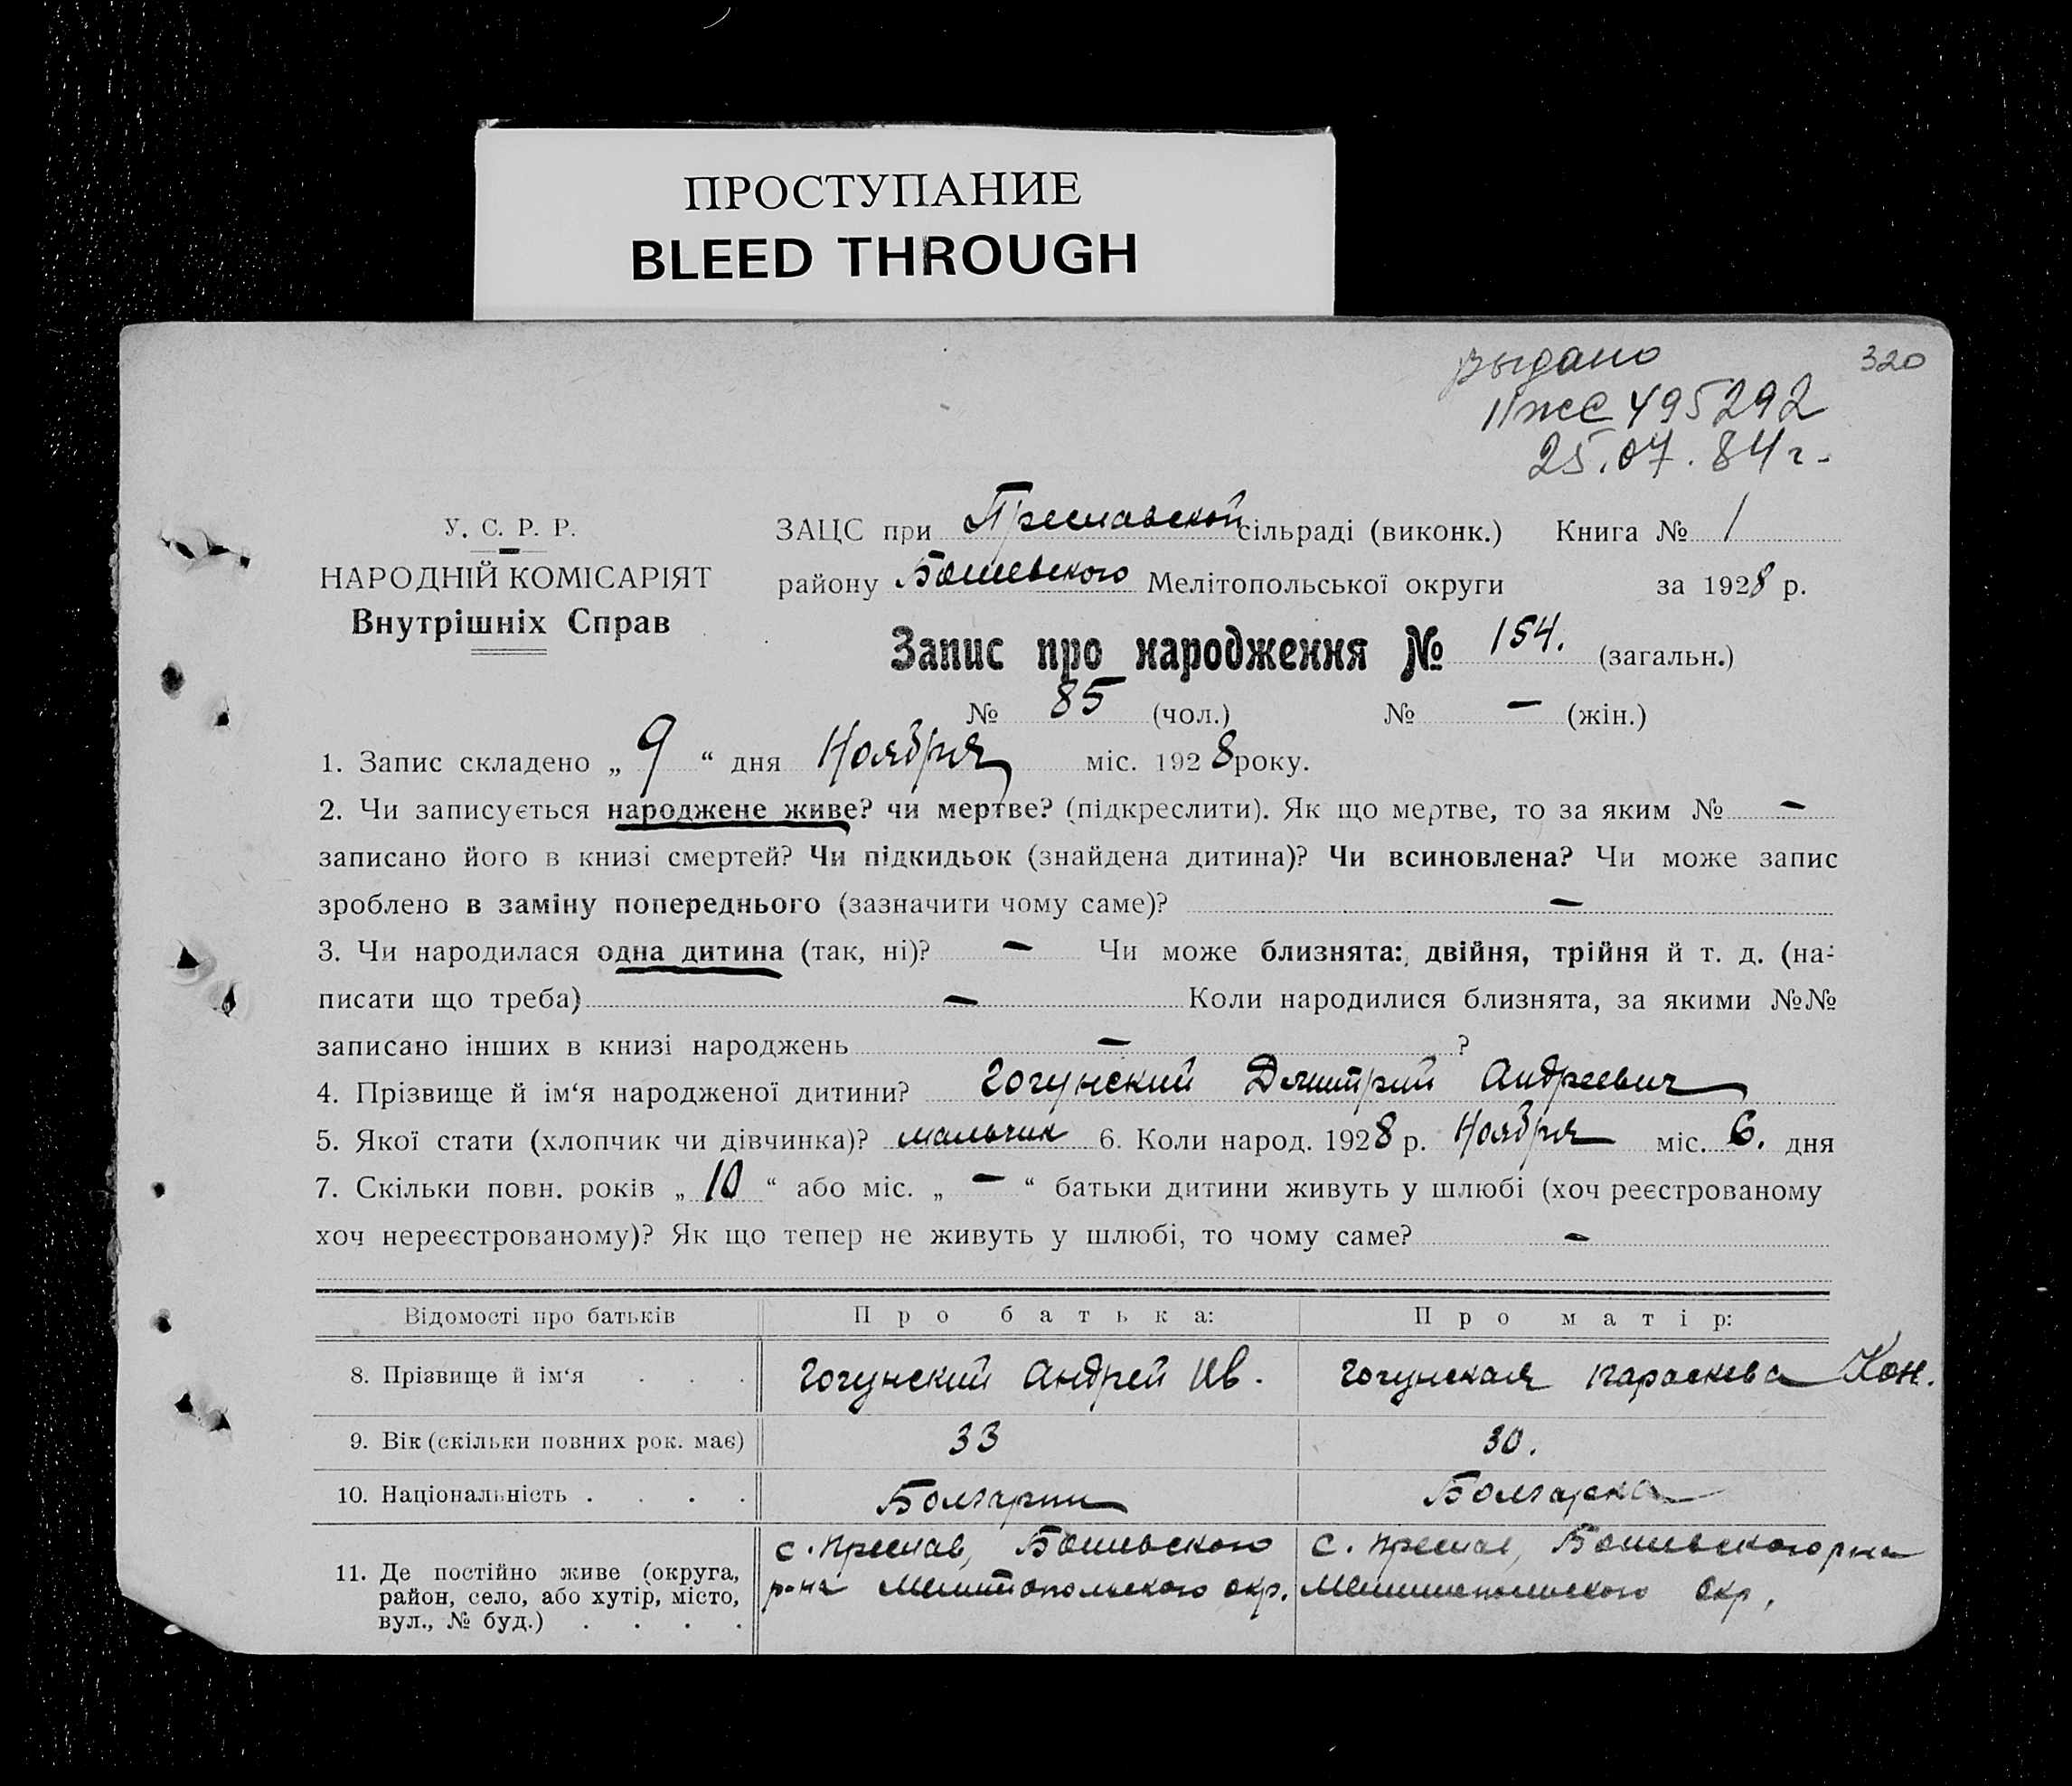 ПРОСТУПАНИЕ
BLEED THROUGH
выдано 320
II ЖС 495292
25.07.84 г.
У. С. Р. Р. ЗАЦС при Преславской сільраді (виконк.) Книга № 1
НАРОДНІЙ КОМІСАРІЯТ району Мелітопольської округи за 1928 р.
Внутрішніх Справ
Запис про народження № 154. (загальн.)
№ 85 (чол.) № – (жін.)
1. Запис складено „ 9 “ дня Ноября міс. 1928 року.
2. Чи записується народжене живе? чи мертве? (підкреслити). Як що мертве, то за яким № –
записано його в книзі смертей? Чи підкидьок (знайдена дитина)? Чи всиновлена? Чи може запис
зроблено в заміну попереднього (зазначити чому саме)? –
3. Чи народилася одна дитина (так, ні)? – Чи може близнята: двійня, трійня й т. д. (на-
писати що треба) – Коли народилися близнята, за якими №№
записано інших в книзі народжень – ?
4. Прізвище й ім‘я народженої дитини? Гогунский Дмитрий Андреевич
5. Якої стати (хлопчик чи дівчинка)? мальчик 6. Коли народ. 1928 р. Ноября міс. 6. дня
7. Скільки повн. років „ 10 “ або міс. „ – “ батьки дитини живуть у шлюбі (хоч реєстрованому
хоч нереєстрованому)? Як що тепер не живуть у шлюбі, то чому саме? –
Відомості про батьків Про батька: Про матір:
8. Прізвище й ім‘я . . . Гогунский Андрей Ив. Гогунская Параскева Кон.
9. Вік (скільки повних рок. має) 33 30.
10. Національність . . . . Болгарин Болгарка
11. Де постійно живе (округа, район, село, або хутір, місто, вул., № буд.) . . . .
с. Преслав, р-на Мелитопольского окр.
с. Преслав, р-на Мелитопольского окр.